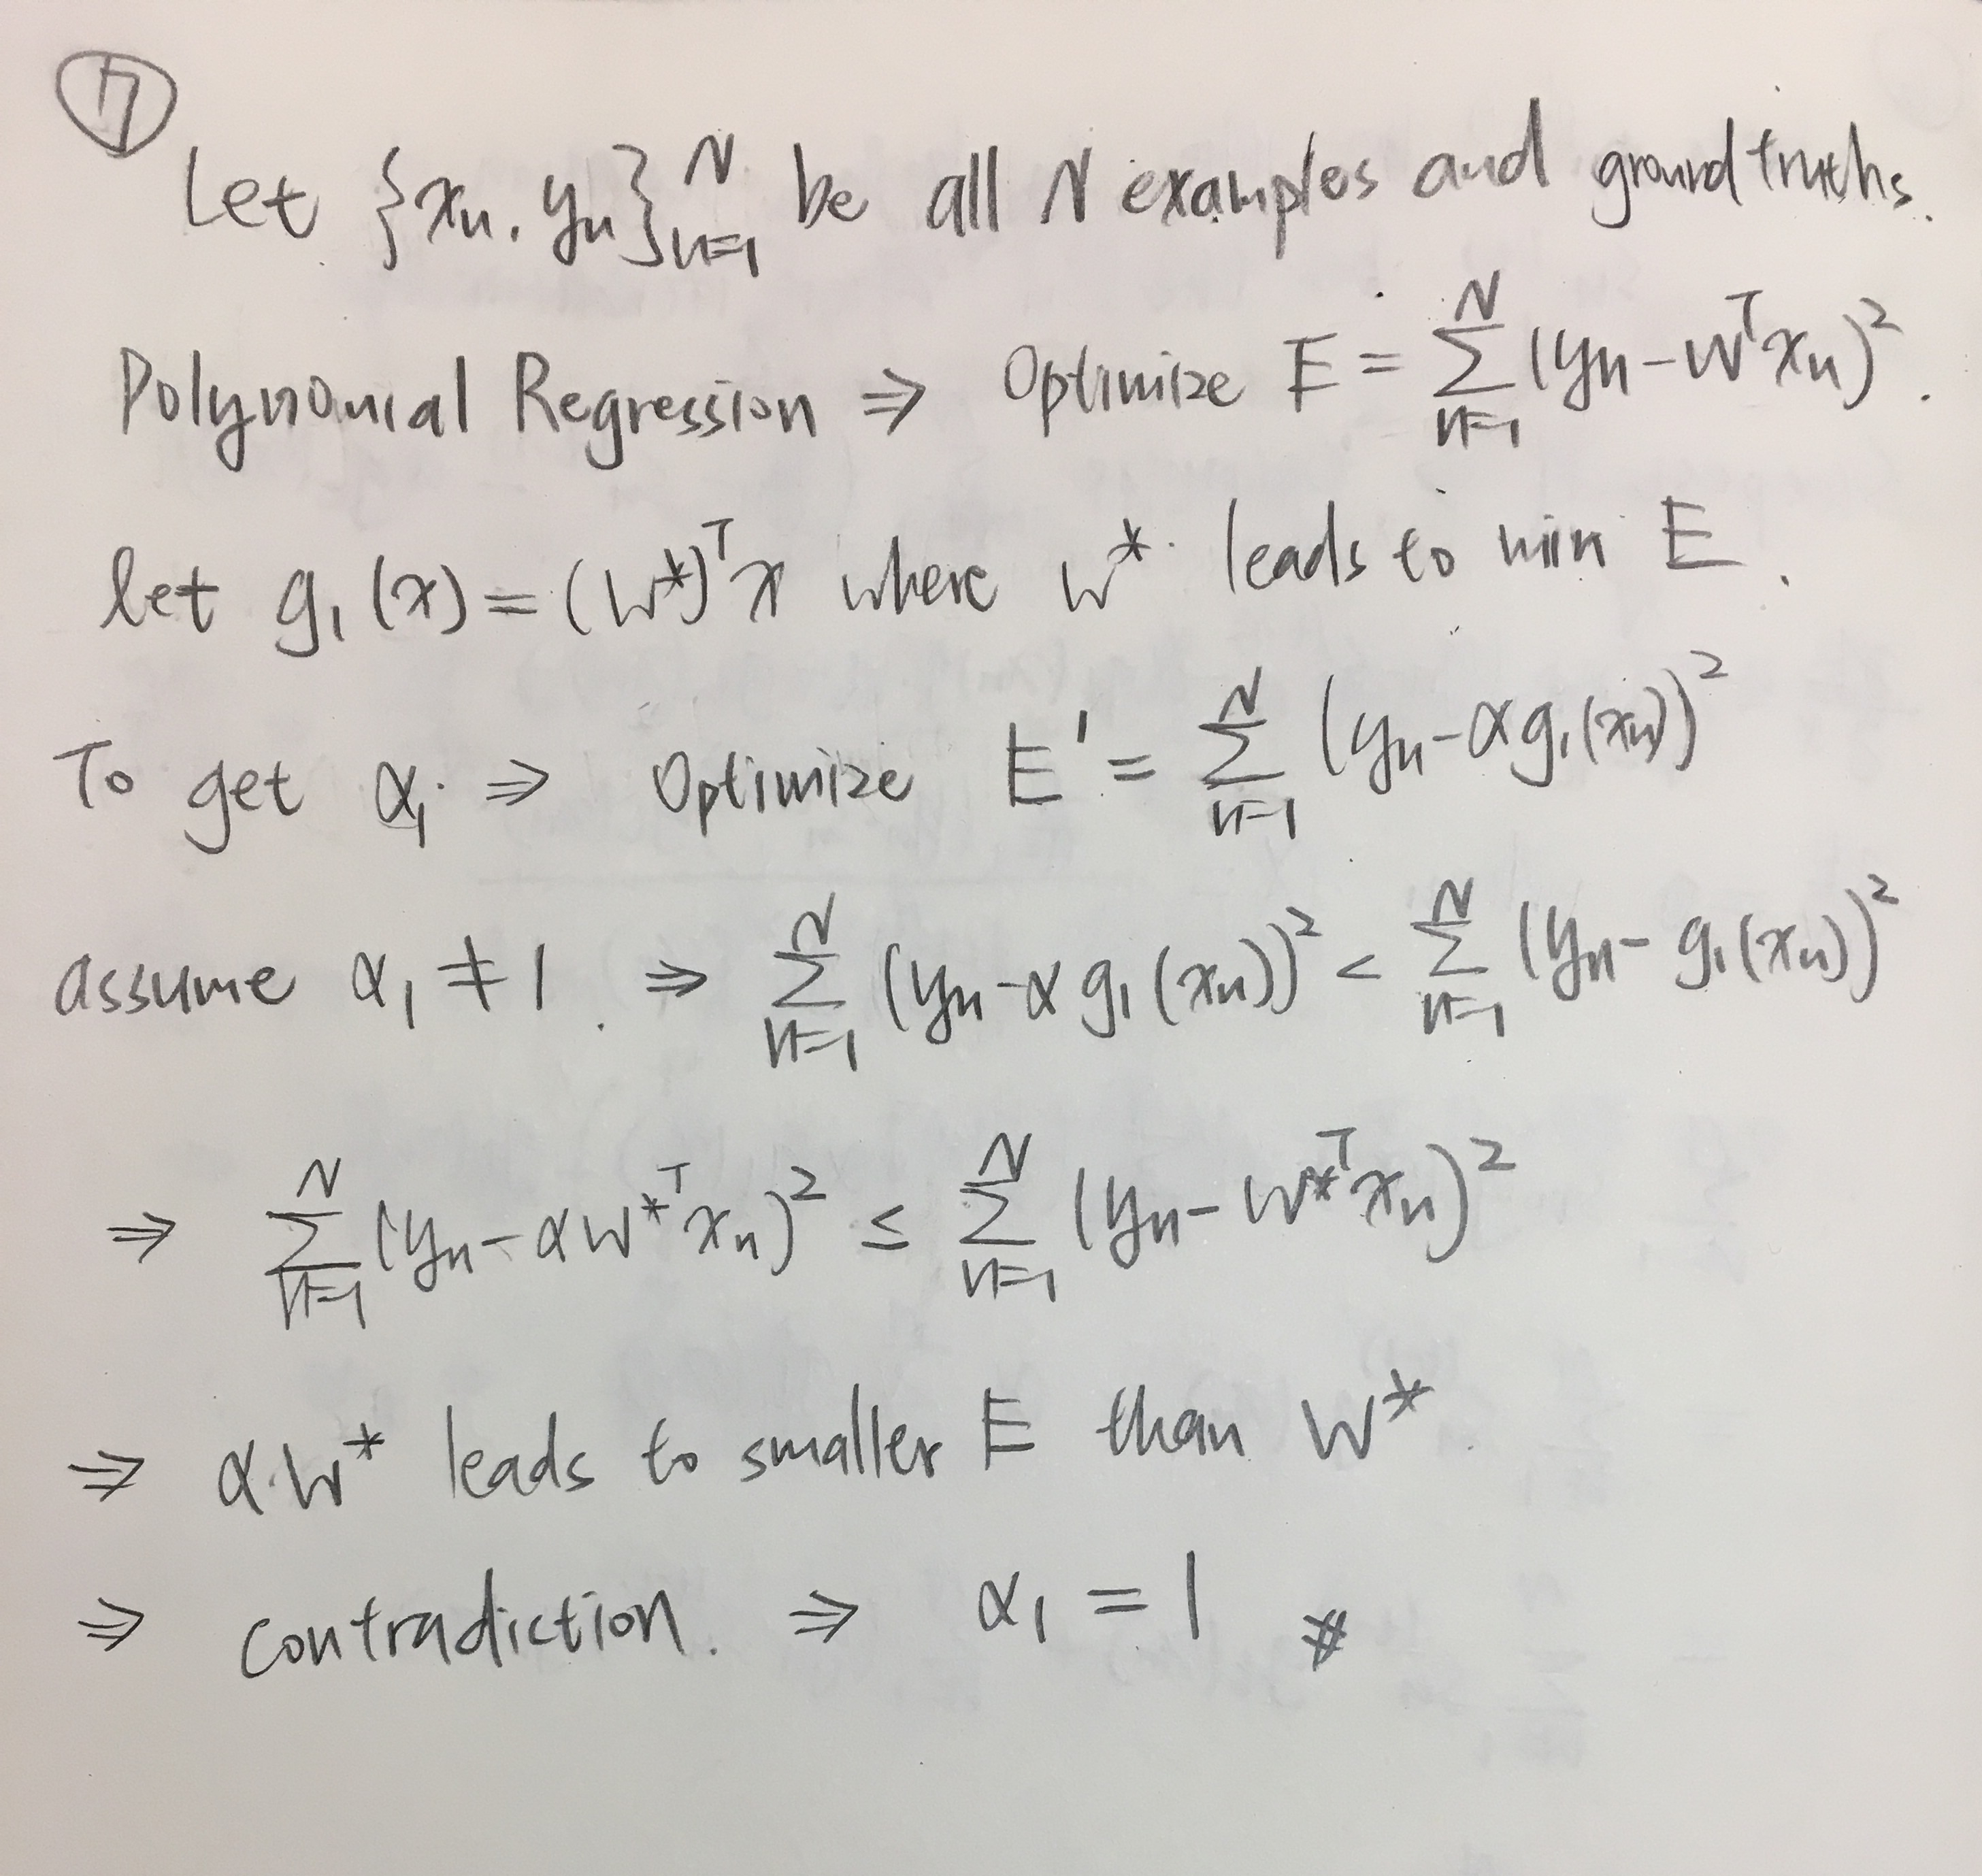 ⑦
Let {xn, yn}_{n=1}^{N} be all N examples and ground truths.
Polynomial Regression ⇒ Optimize E = ∑_{n=1}^{N} (yn - W^T xn)^2.
let g1(x) = (W*)^T x where w* leads to min E.
To get α1 ⇒ Optimize E' = ∑_{n=1}^{N} (yn - αg1(xn))^2
assume α1 ≠ 1. ⇒ ∑_{n=1}^{N} (yn - αg1(xn))^2 < ∑_{n=1}^{N} (yn - g1(xn))^2
⇒ ∑_{n=1}^{N} (yn - αW*^T xn)^2 ≤ ∑_{n=1}^{N} (yn - W*^T xn)^2
⇒ α·W* leads to smaller E than W*.
⇒ contradiction. ⇒ α1 = 1 #